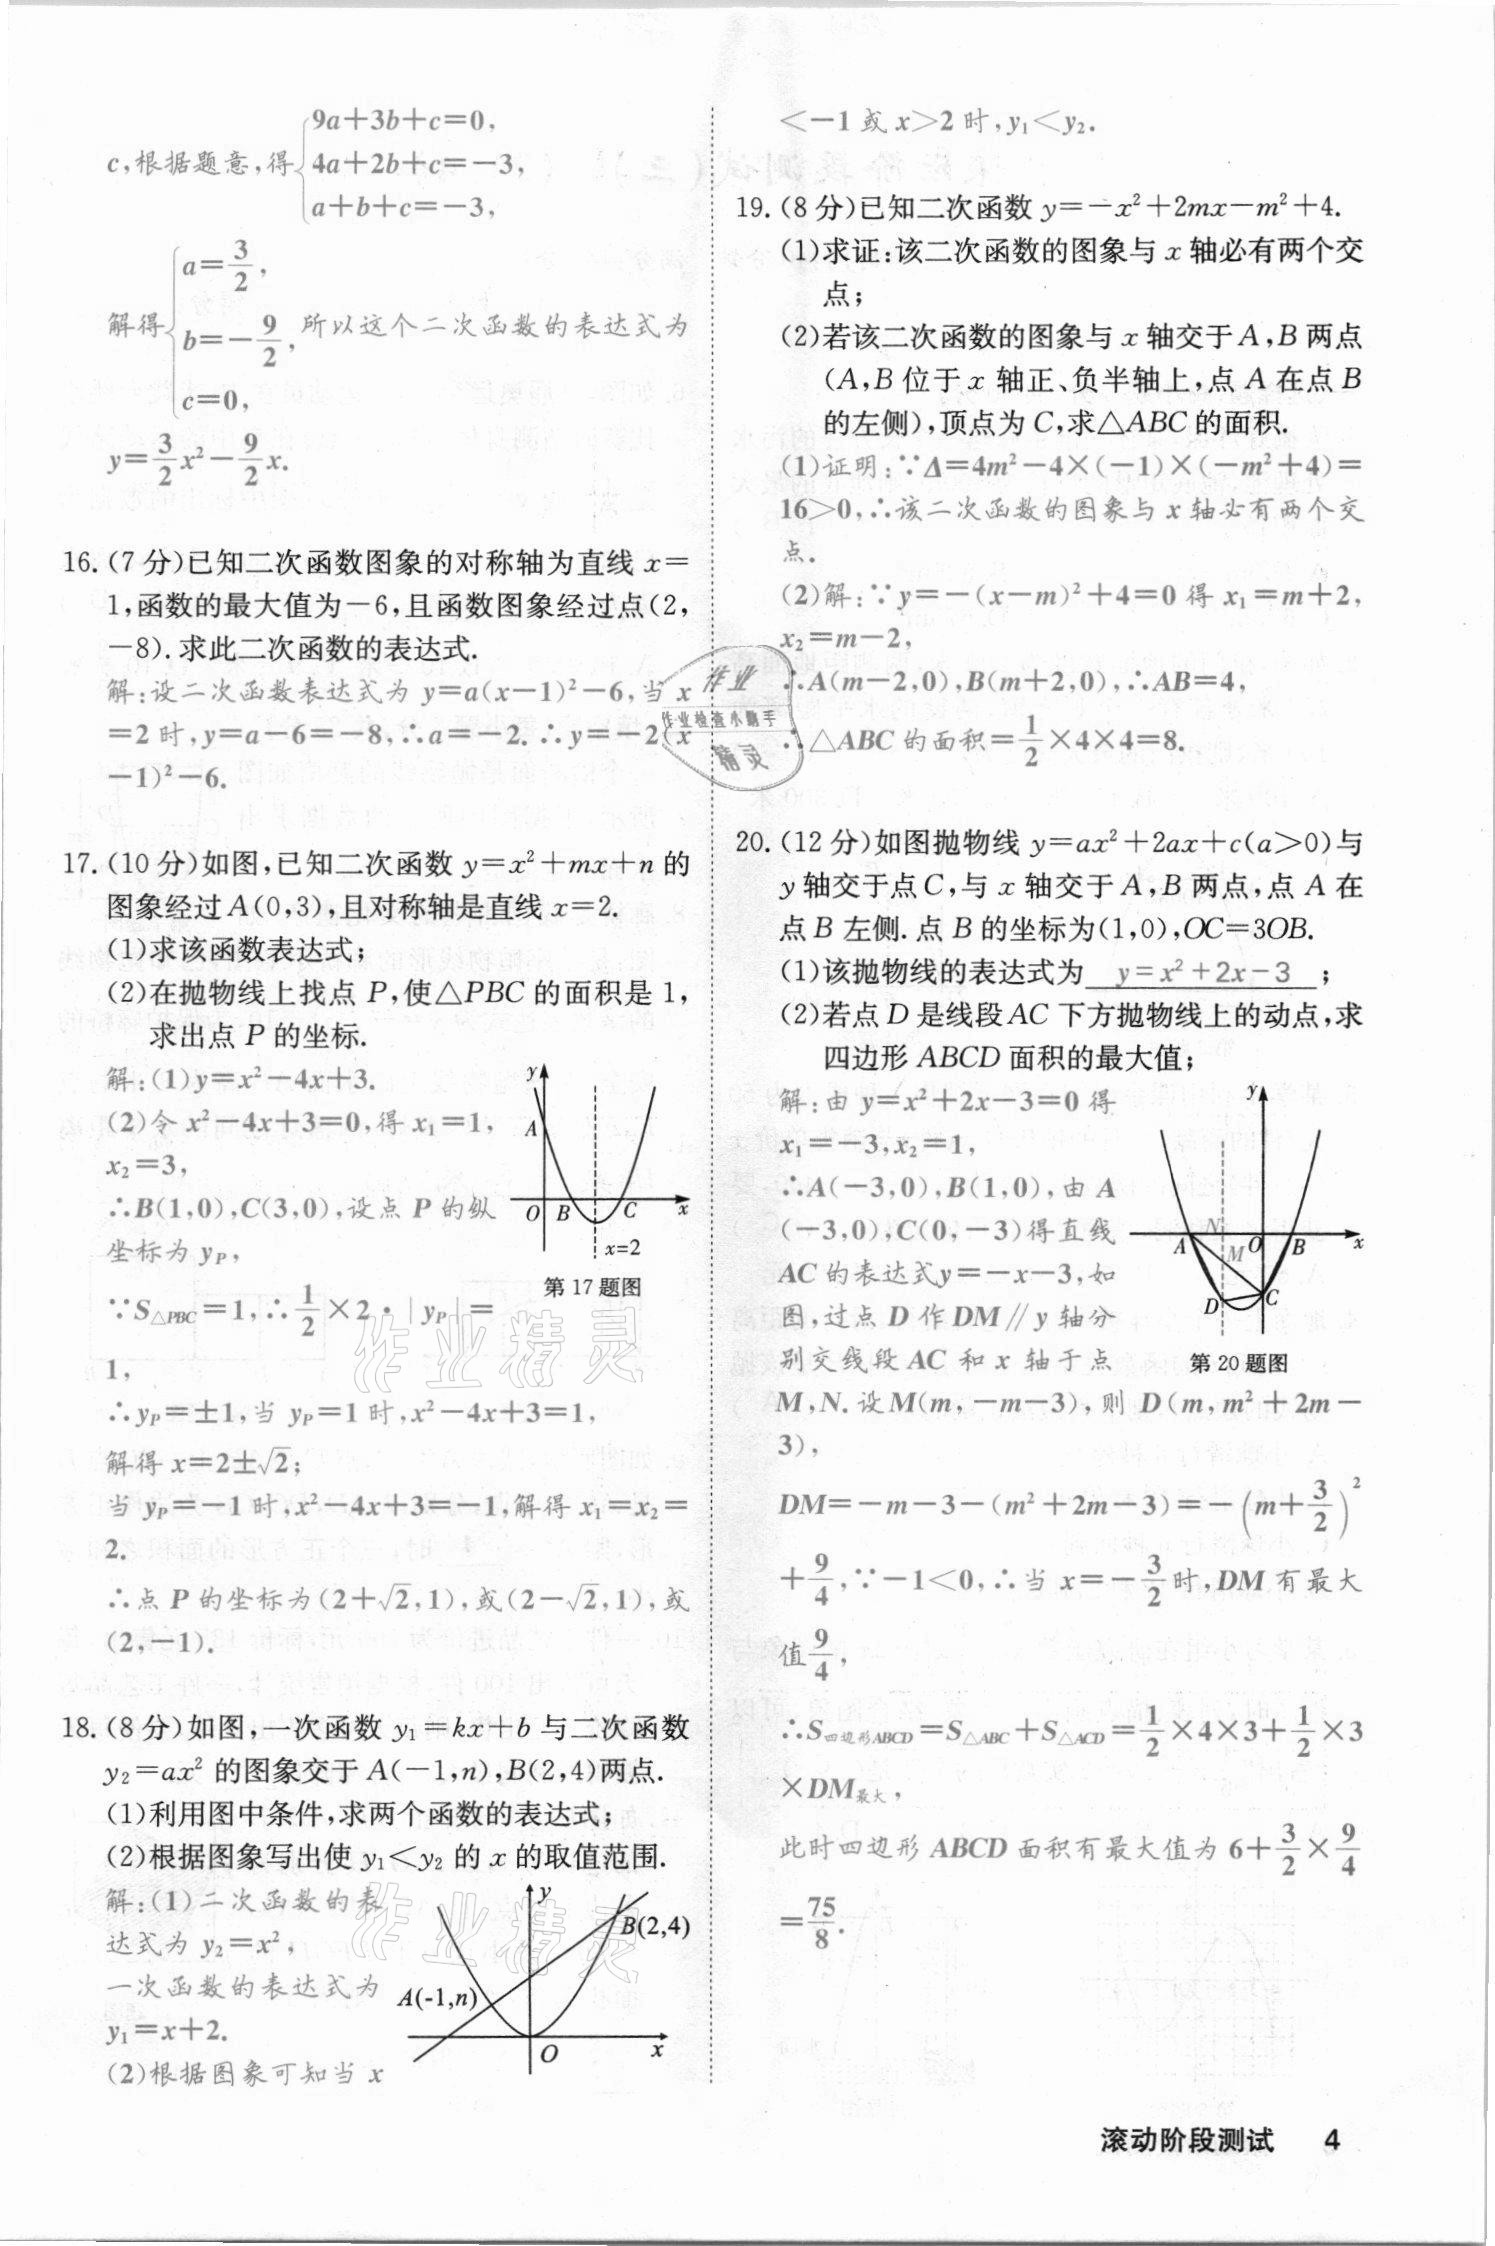 9a+3b+c=0,
c,根据题意,得 4a+2b+c=-3,
a+b+c=-3,
a=3/2,
解得 b=-9/2, 所以这个二次函数的表达式为
c=0,
y=3/2x²-9/2x.
16. (7分)已知二次函数图象的对称轴为直线 x=
1,函数的最大值为-6,且函数图象经过点(2,
-8).求此二次函数的表达式.
解:设二次函数表达式为 y=a(x-1)²-6,当 x
=2时,y=a-6=-8,∴a=-2.∴y=-2(x
-1)²-6.
17. (10分)如图,已知二次函数 y=x²+mx+n 的
图象经过A(0,3),且对称轴是直线 x=2.
(1)求该函数表达式;
(2)在抛物线上找点 P,使△PBC 的面积是1,
求出点 P 的坐标.
解:(1)y=x²-4x+3.
(2)令 x²-4x+3=0,得 x₁=1,
x₂=3,
∴B(1,0),C(3,0),设点 P 的纵
坐标为 yP,
∵S△PBC=1,∴1/2×2·|yP|=
1,
∴yP=±1,当 yP=1时,x²-4x+3=1,
解得 x=2±√2;
当 yP=-1时,x²-4x+3=-1,解得 x₁=x₂=
2.
∴点 P 的坐标为(2+√2,1),或(2-√2,1),或
(2,-1).
y
A
O B C x
x=2
第17题图
18. (8分)如图,一次函数 y₁=kx+b 与二次函数
y₂=ax² 的图象交于 A(-1,n),B(2,4)两点.
(1)利用图中条件,求两个函数的表达式;
(2)根据图象写出使 y₁<y₂ 的 x 的取值范围.
解:(1)二次函数的表
达式为 y₂=x²,
一次函数的表达式为
y₁=x+2.
(2)根据图象可知当 x
y
B(2,4)
A(-1,n)
O x
<-1或x>2时,y₁<y₂.
19. (8分)已知二次函数 y=-x²+2mx-m²+4.
(1)求证:该二次函数的图象与 x 轴必有两个交
点;
(2)若该二次函数的图象与 x 轴交于A,B两点
(A,B位于x 轴正、负半轴上,点 A 在点 B
的左侧),顶点为 C,求△ABC 的面积.
(1)证明:∵Δ=4m²-4×(-1)×(-m²+4)=
16>0,∴该二次函数的图象与 x 轴必有两个交
点.
(2)解:∵y=-(x-m)²+4=0得 x₁=m+2,
x₂=m-2,
∴A(m-2,0),B(m+2,0),∴AB=4,
∴△ABC 的面积=1/2×4×4=8.
作业
作业检查小助手
精灵
20. (12分)如图抛物线 y=ax²+2ax+c(a>0)与
y轴交于点C,与 x 轴交于A,B两点,点 A 在
点B 左侧.点 B 的坐标为(1,0),OC=3OB.
(1)该抛物线的表达式为 y=x²+2x-3 ;
(2)若点 D 是线段AC 下方抛物线上的动点,求
四边形 ABCD 面积的最大值;
解:由 y=x²+2x-3=0得
x₁=-3,x₂=1,
∴A(-3,0),B(1,0),由 A
(-3,0),C(0,-3)得直线
AC 的表达式y=-x-3,如
图,过点 D 作 DM∥y 轴分
别交线段 AC 和 x 轴于点
M,N.设M(m,-m-3),则 D(m,m²+2m-
3),
DM=-m-3-(m²+2m-3)=-(m+3/2)²
+9/4,∵-1<0,∴当 x=-3/2时,DM 有最大
值9/4,
∴S四边形ABCD=S△ABC+S△ACD=1/2×4×3+1/2×3
×DM最大,
此时四边形 ABCD 面积有最大值为 6+3/2×9/4
=75/8.
y
N
A M O B x
D C
第20题图
作业精灵
作业精灵
滚动阶段测试 4